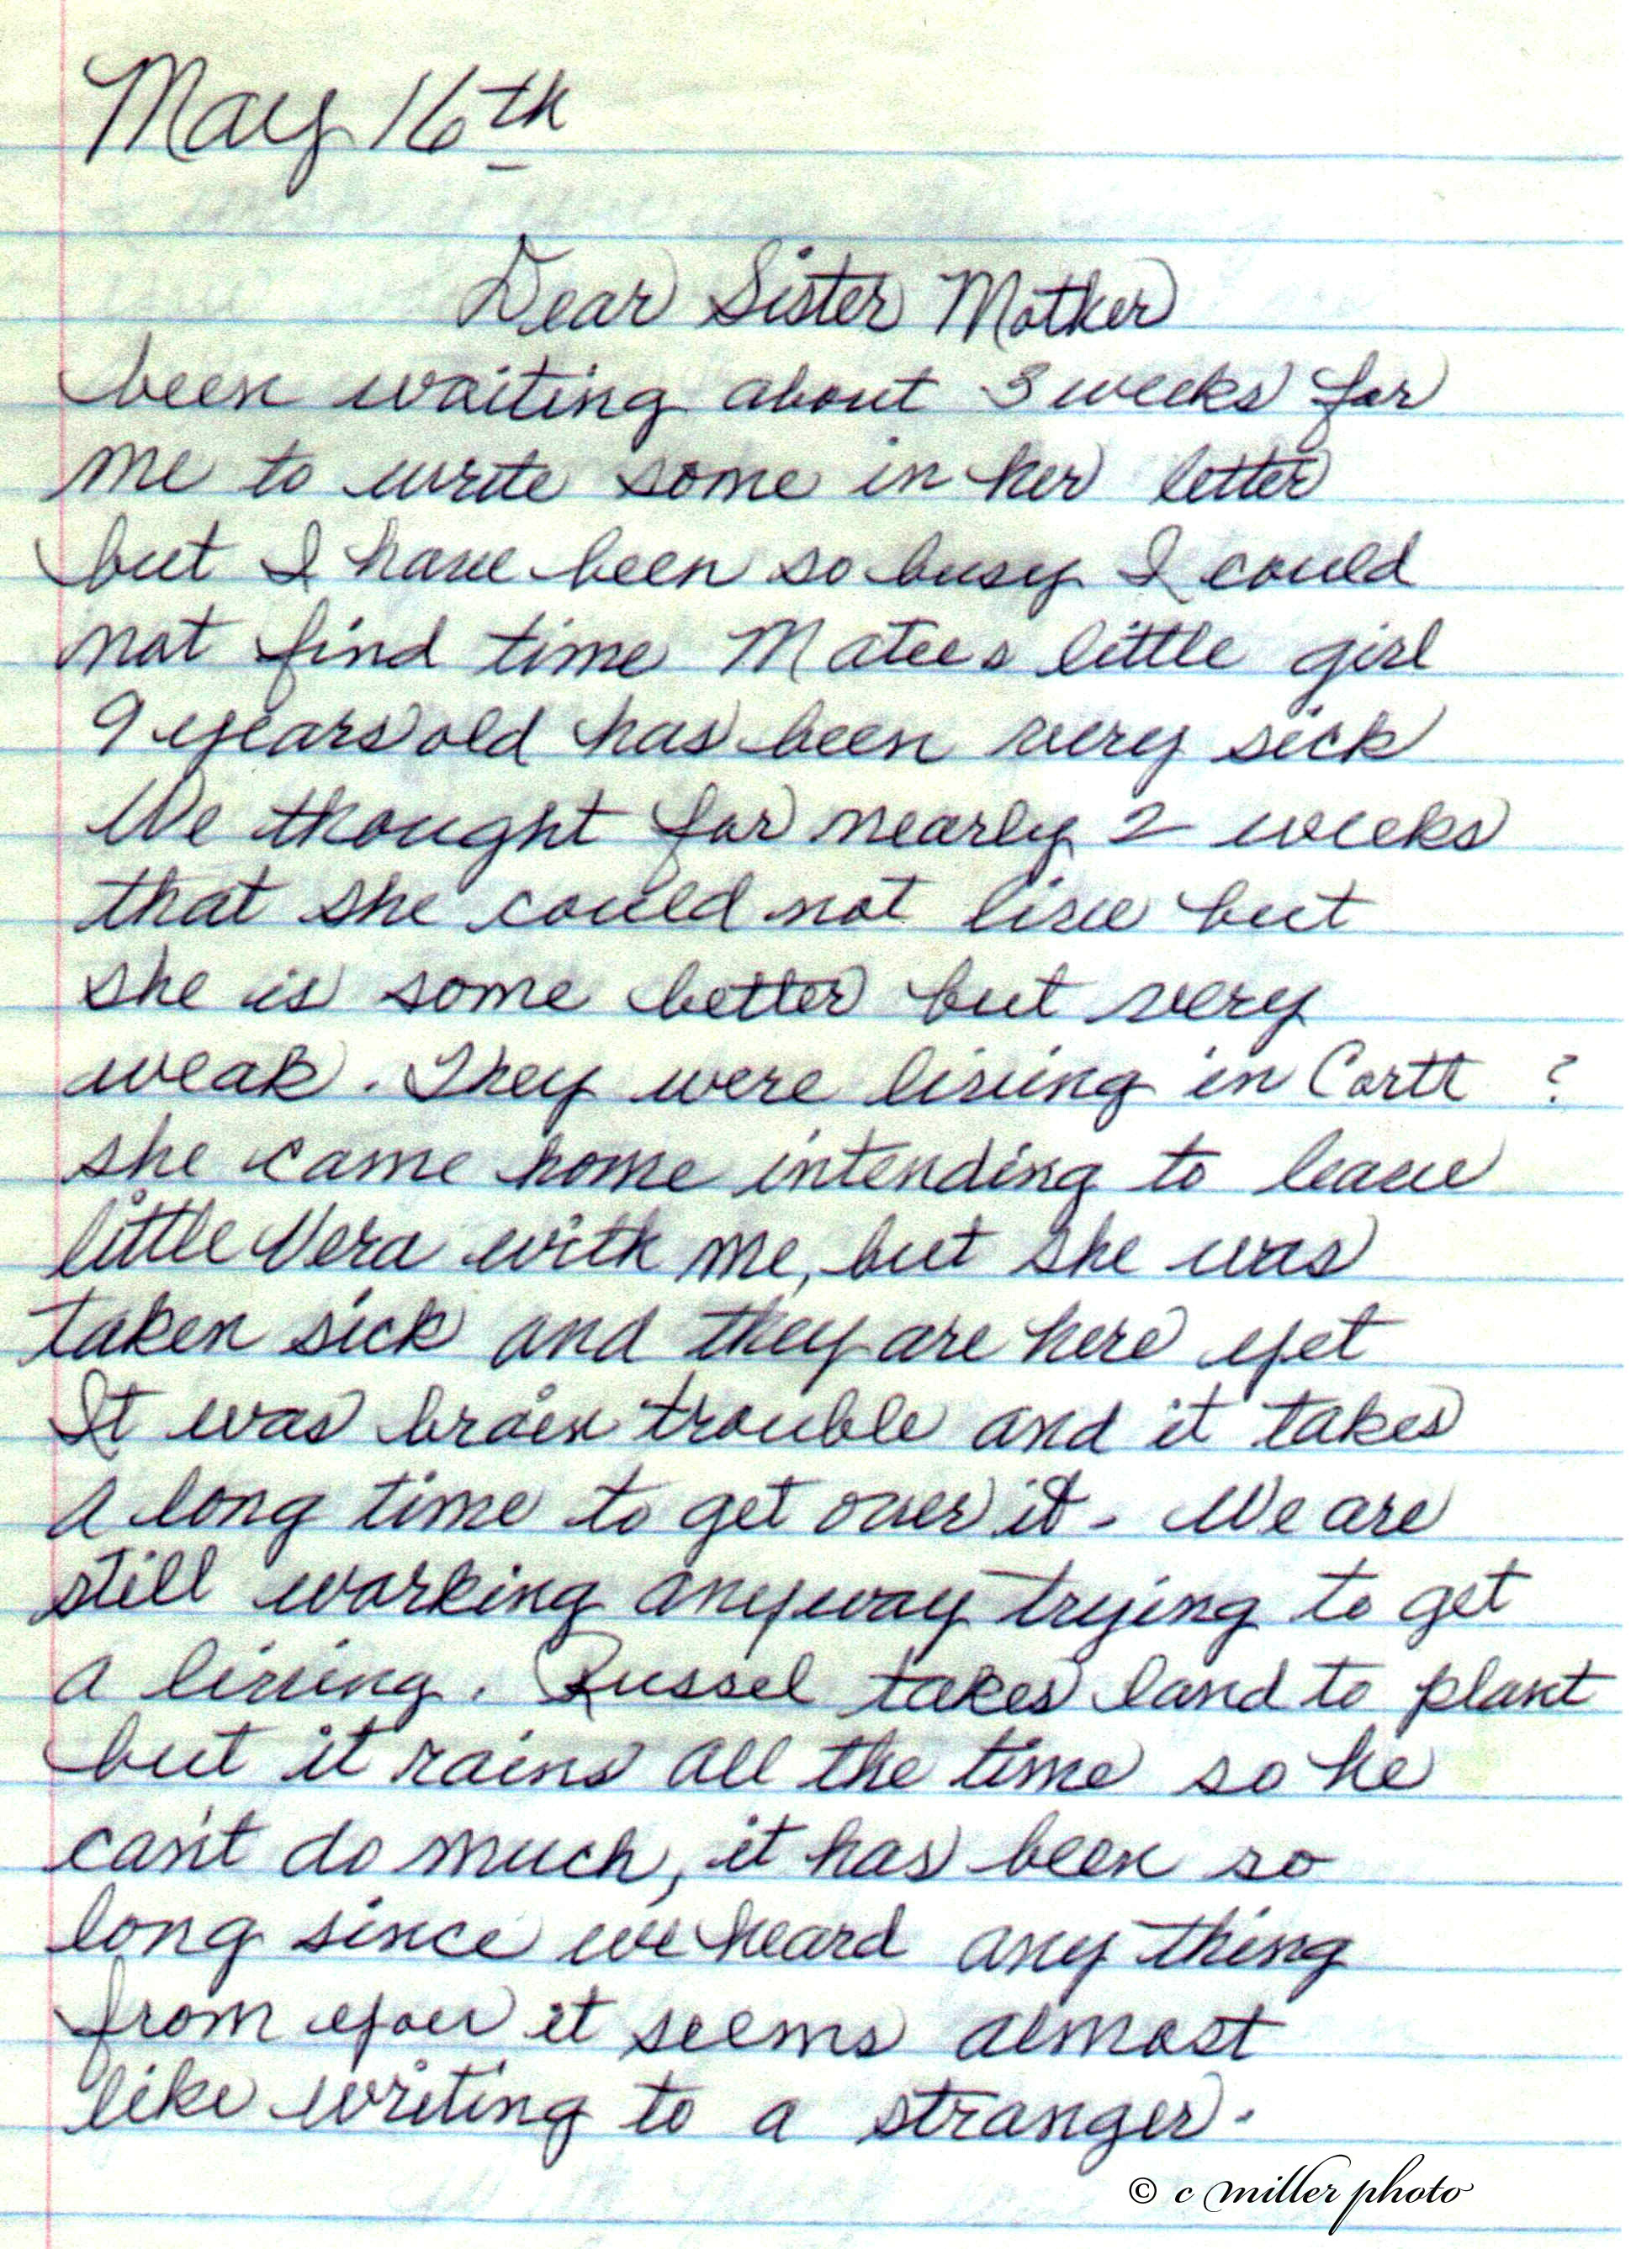 May 16th
Dear Sister Mother
been waiting about 3 weeks for
me to write some in her letter
but I have been so busy I could
not find time Matees little girl
9 years old has been very sick
We thought for nearly 2 weeks
that she could not live but
she is some better but very
weak. They were living in Cortt ?
she came home intending to leave
little Vera with me, but she was
taken sick and they are here yet
It was brain trouble and it takes
a long time to get over it. We are
still working anyway trying to get
a living. Russel takes land to plant
but it rains all the time so he
can't do much, it has been so
long since we heard any thing
from you it seems almost
like writing to a stranger.
© c miller photo